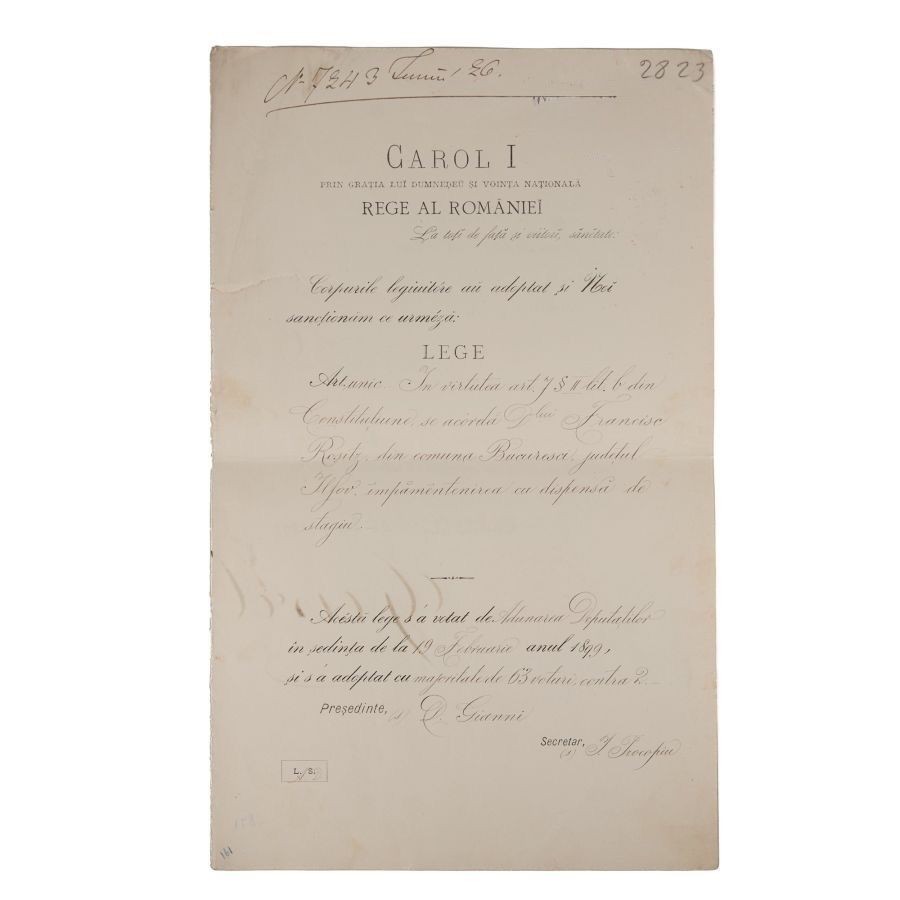 No 7243 Iunii, 26.
2823
CAROL I
PRIN GRAȚIA LUĬ DUMNEḐEŬ ȘI VOINȚA NAȚIONALĂ
REGE AL ROMÂNIEĬ
La toți de față și viitori, sănătate:
Corpurile legiuitóre aŭ adoptat și Noĭ
sancționăm ce urméză:
LEGE
Art. unic. In virtutea art. 7 § II lit. b din
Constituțiune, se acórdă Dlui Francisc
Rositz, din comuna Bucuresci, județul
Ilfov, împămêntenirea cu dispensă de
stagiu.
Acéstă lege s'a votat de Adunarea Deputaților
în ședința de la 19 Februarie anul 1899,
și s'a adoptat cu majoritate de 63 voturi, contra 2.
Președinte, (s) D. Gianni
Secretar, (s) I. Procopiu
L. S.
161